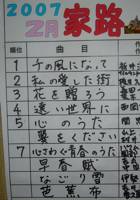 2007
2月 家路
順位 曲目
1 千の風になって
2 私の愛した街
3 花を贈ろう
4 遠い世界に
5 心のうた
翼をください
7 心さわぐ青春のうた
早春賦
なごり雪
芭蕉布